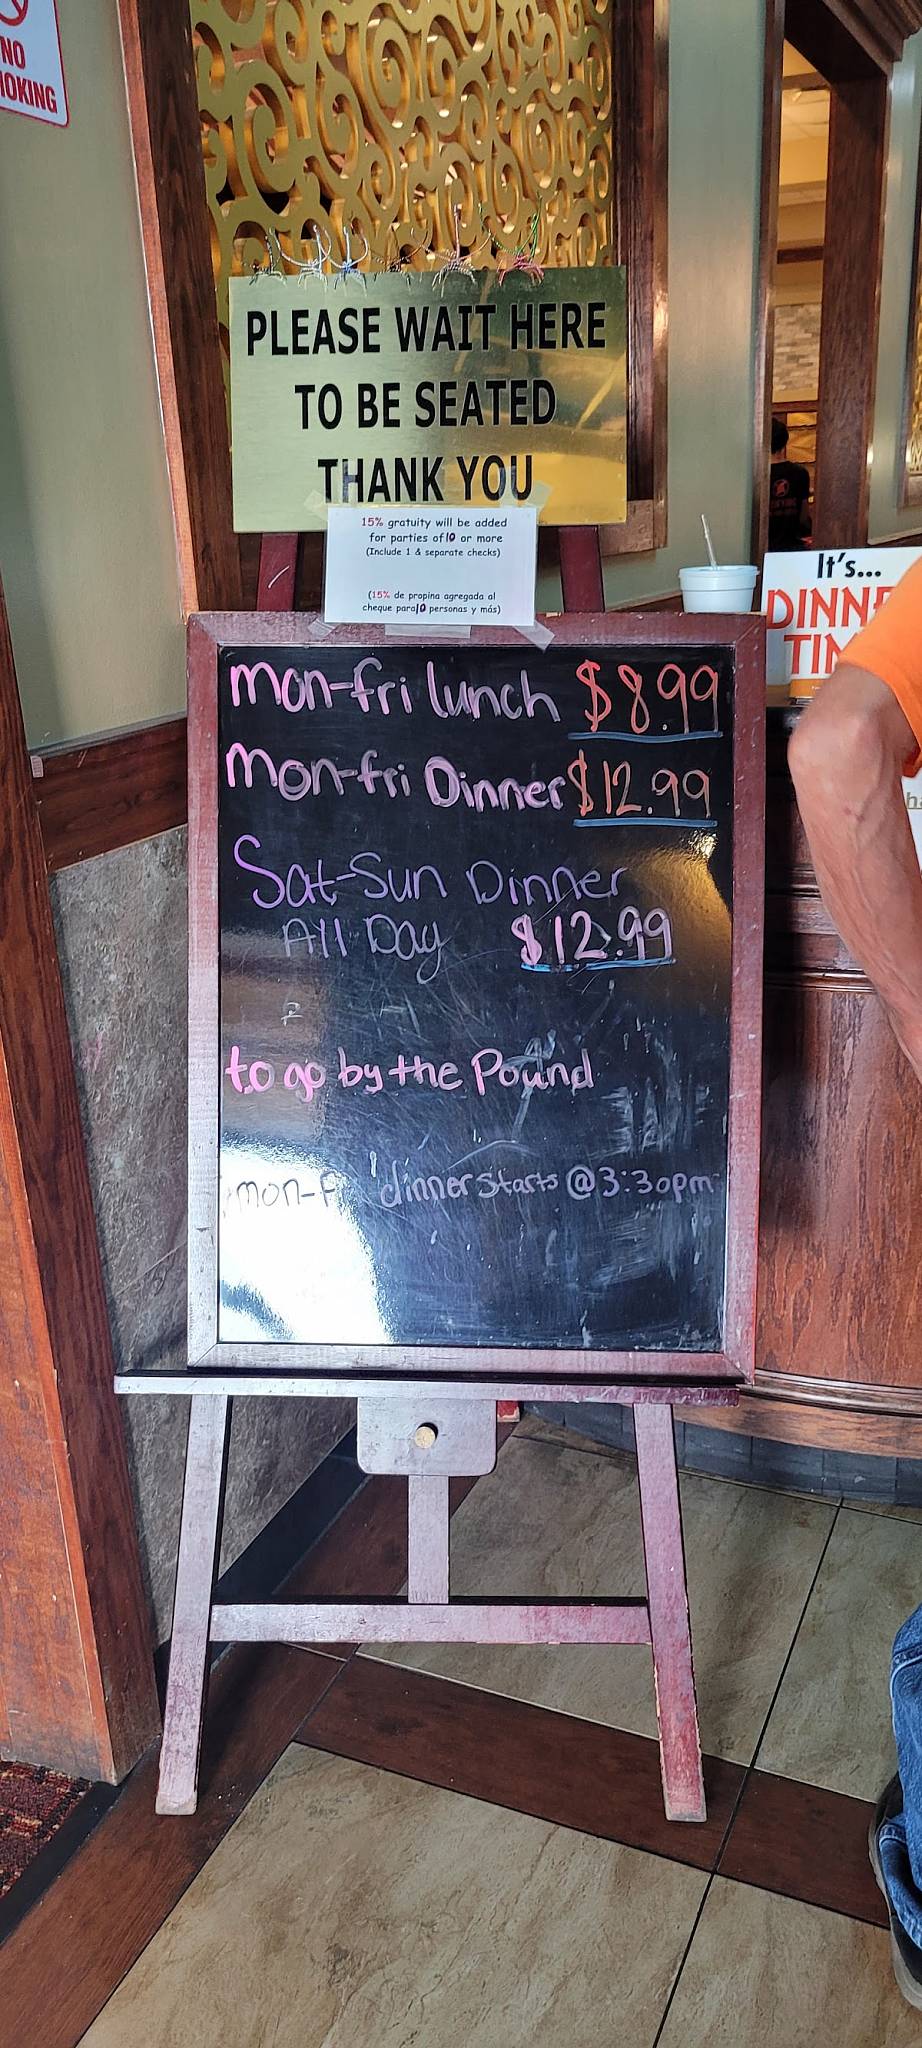 NO
OKING
PLEASE WAIT HERE
TO BE SEATED
THANK YOU
15% gratuity will be added
for parties of 10 or more
(Include 1 & separate checks)
(15% de propina agregada al
cheque para 10 personas y más)
It's...
DINNE
TIM
mon-fri lunch $8.99
mon-fri Dinner $12.99
Sat-Sun Dinner
All Day $12.99
to go by the Pound
mon-fri dinner starts @ 3:30pm